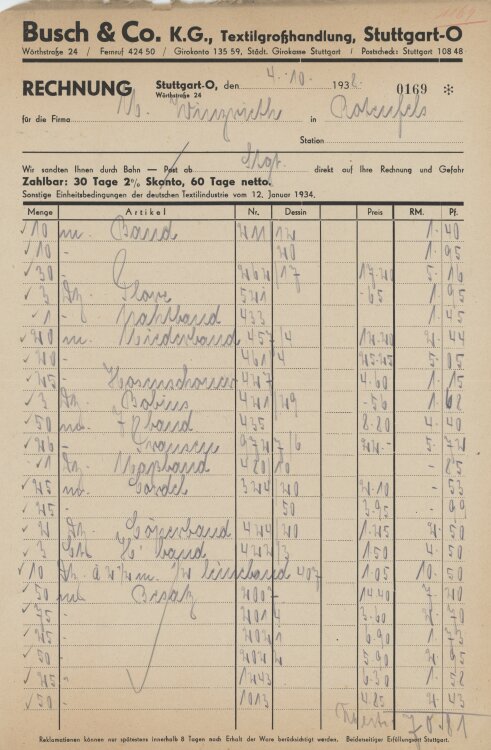 Busch & Co. K.G., Textilgroßhandlung, Stuttgart-O
Wörthstraße 24 / Fernruf 424 50 / Girokonto 135 59, Städt. Girokasse Stuttgart / Postscheck: Stuttgart 108 48
RECHNUNG Stuttgart-O, den 4.10. 193 0169 *
Wörthstraße 24
für die Firma in Rotenfels
Station
Wir sandten Ihnen durch Bahn — Post ab Stgt. direkt auf Ihre Rechnung und Gefahr
Zahlbar: 30 Tage 2% Skonto, 60 Tage netto.
Sonstige Einheitsbedingungen der deutschen Textilindustrie vom 12. Januar 1934.
Menge Artikel Nr. Dessin Preis RM. Pf.
10 m. Band 211 12 1. 40
10 - 20 1. 95
30 - 262 17 17.20 5. 16
3 Dz. 521 -65 1. 95
1 - Nahtband 433 1. 45
20 m. 457/4 12.20 2. 44
20 - 461 4 25.25 5. 05
25 - Hosenschoner 427 4.60 1. 15
3 Dz. Bobins 421/29 -56 1. 68
50 m. band 435 8.80 4. 40
26 - Fransen 972 7/6 22.- 5. 72
1 Dz. Maßband 480 10 - 85
25 m. Kordel 324 20 2.10 - 53
25 - 50 3.95 - 99
2 Dz. Köperband 424 20 1.25 2. 50
3 band 422/3 1.50 4. 50
10 Dz. à 2½ m. band 407 1.05 10. 50
50 m. Besatz 14.40 7. 20
75 - 201 4 3.60 2. 70
25 - 202 1 6.90 1. 73
50 - 202 2 5.90 2. 95
25 " 1243 6.30 1. 58
50 - 1013 4.85 2. 43
78.81
Reklamationen können nur spätestens innerhalb 8 Tagen nach Erhalt der Ware berücksichtigt werden. Beiderseitiger Erfüllungsort Stuttgart.